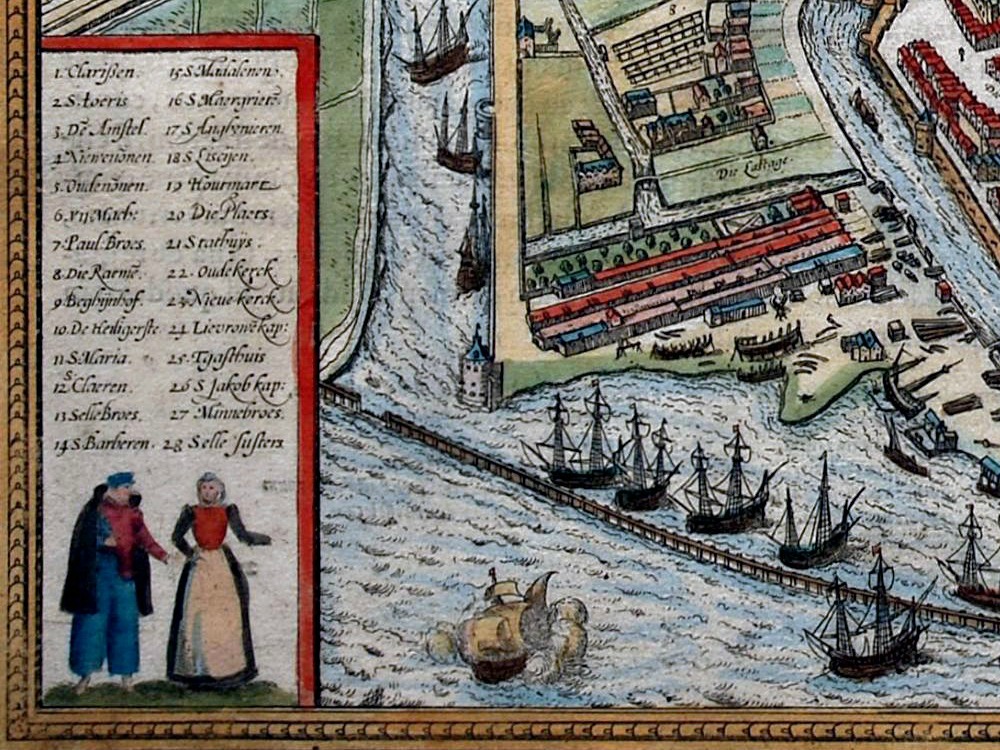 1. Clarißen.
2 S. toeris
3. De Amstel.
4. Niewenonen.
5. Oudenonen.
6. XII Mach:
7. Paul. Broes.
8. Die Rarnie.
9. Beghijnhof.
10. De Heiligerste
11 S. Maria.
12 S. Claeren.
13 Selle Broes.
14 S. Barberen.
15 S. Madalenen.
16 S. Maergriete.
17 S. Angnenieren.
18 S. Liscijen.
19 Houtmart
20 Die Plaets.
21 Stathuÿs.
22. Oude kerck
23. Nieue kerck
24. Lievrowe kap:
25. Tgasthuis
26 S Jakob kap:
27 Minnebroes.
28 Selle susters
Die Lastage.